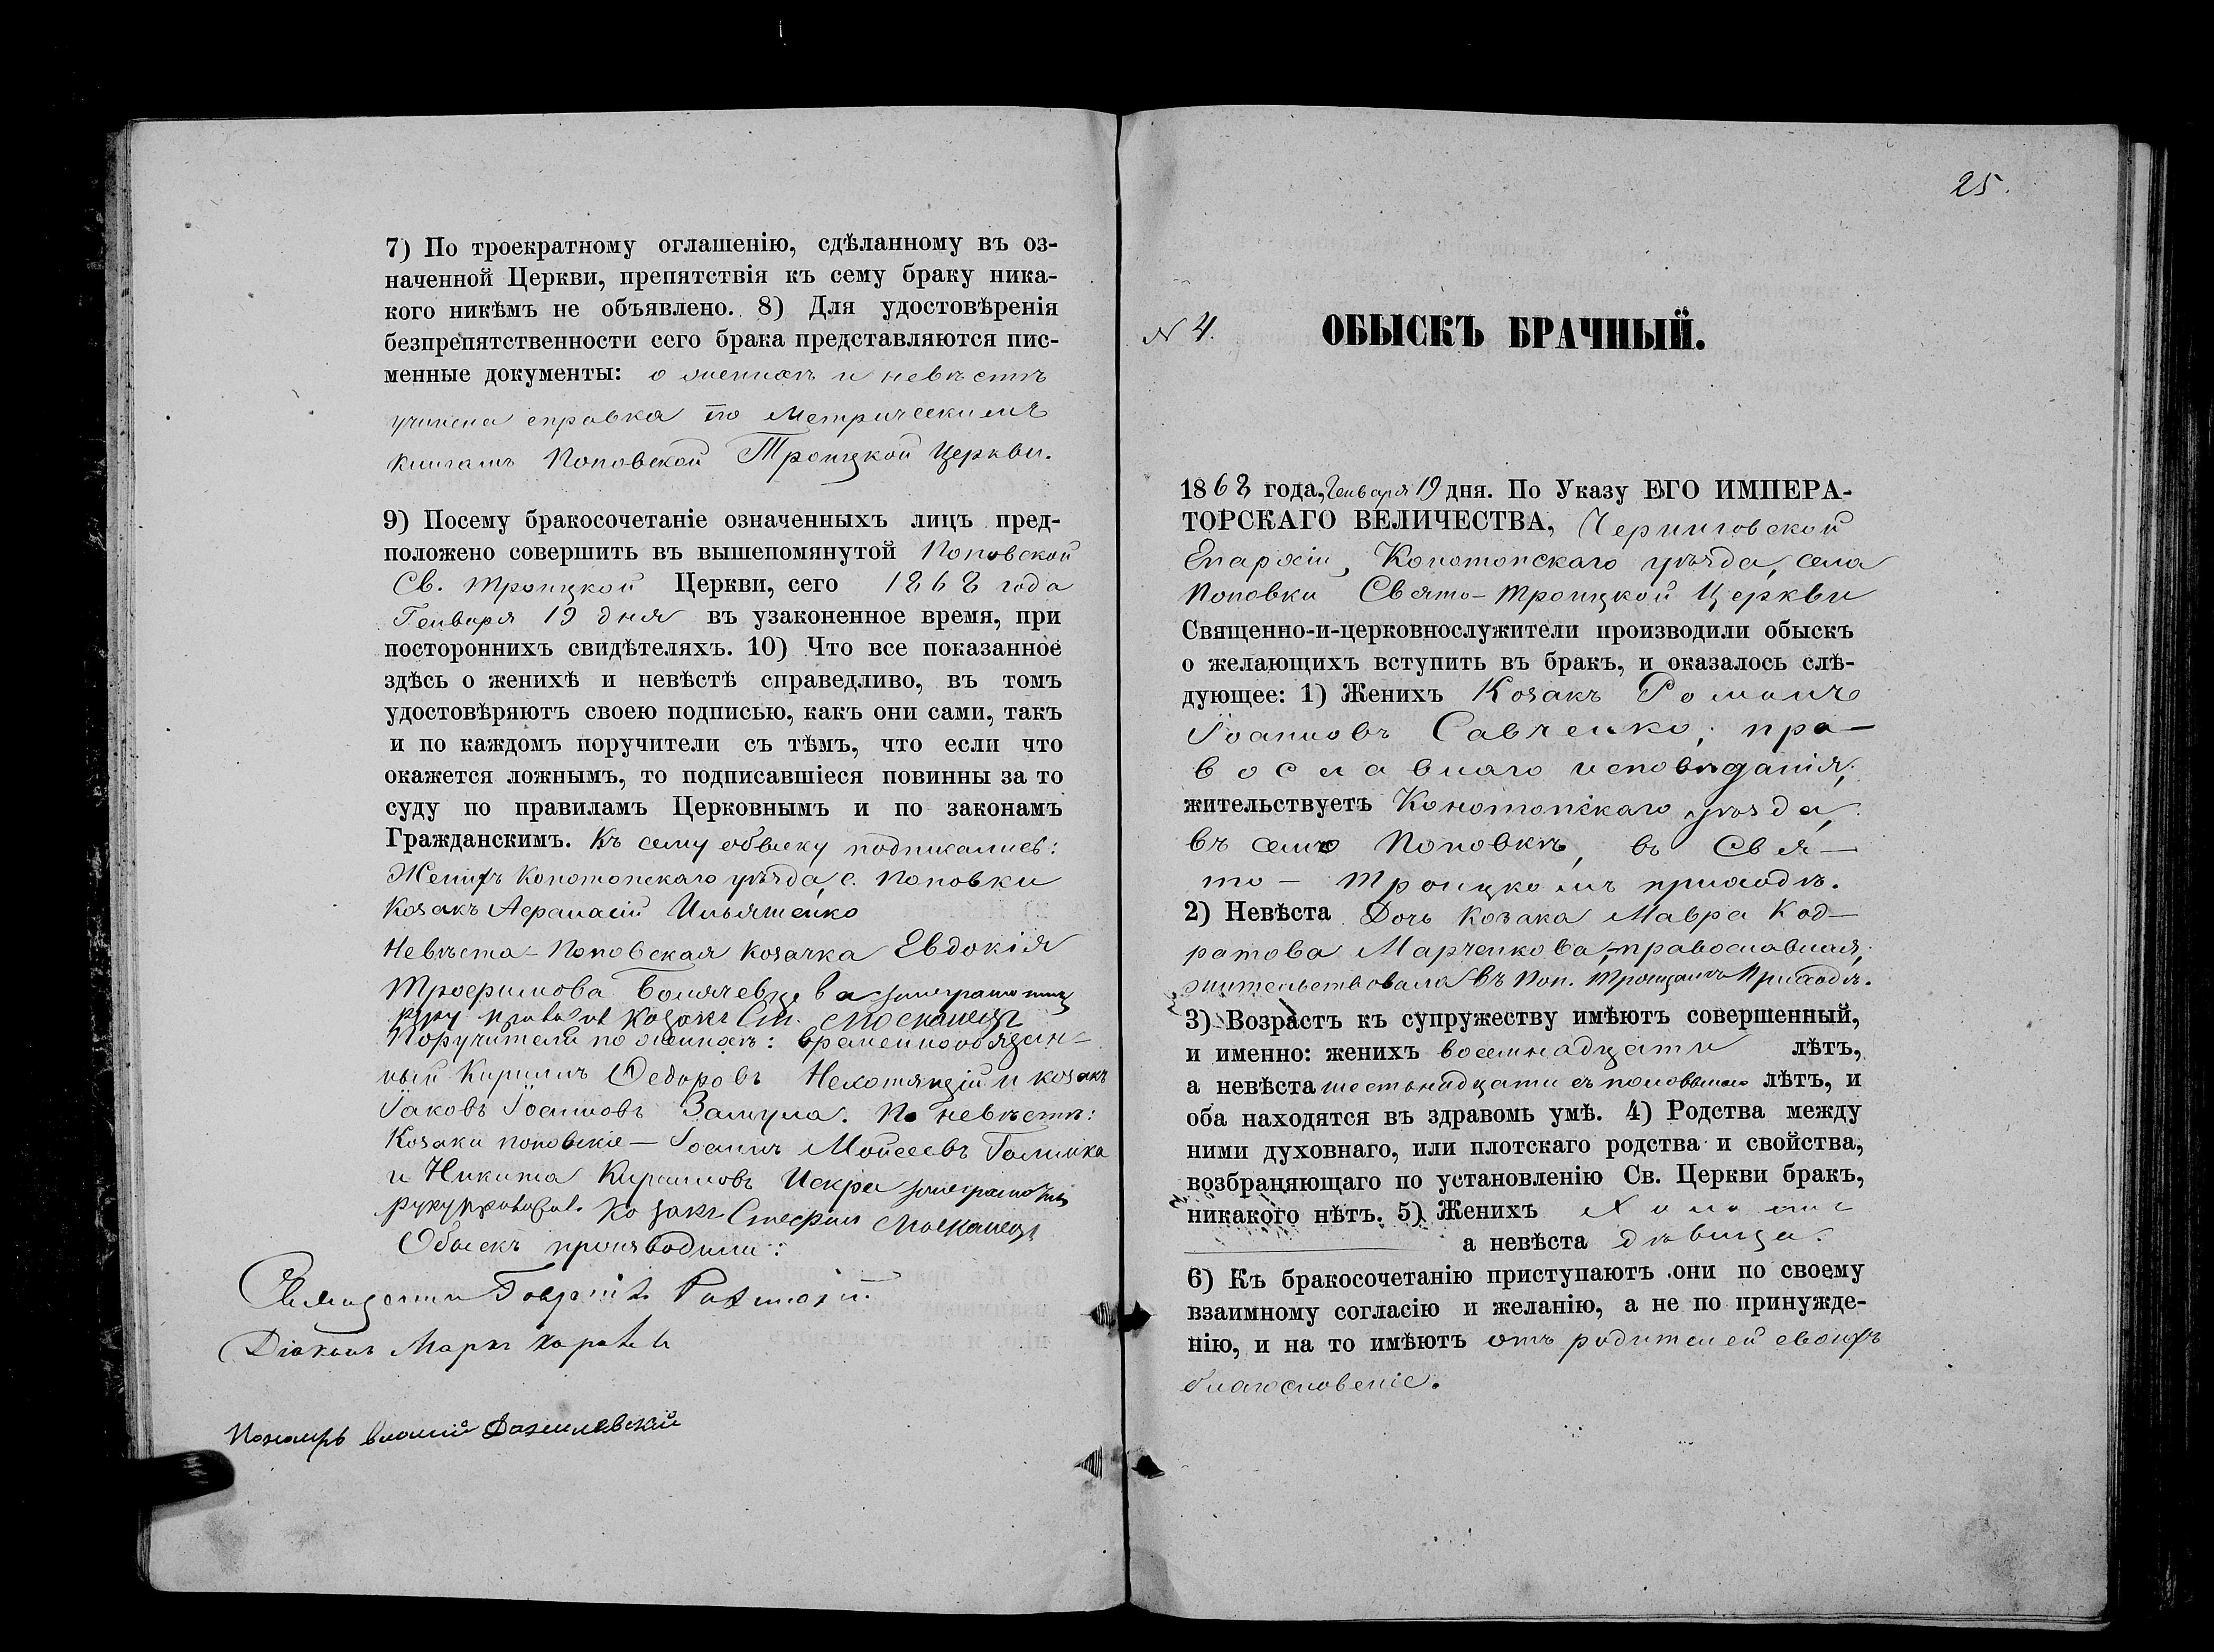 7) По троекратному оглашенію, сдѣланному въ оз-
наченной Церкви, препятствія къ сему браку ника-
кого никѣмъ не объявлено. 8) Для удостовѣренія
безпрепятственности сего брака представляются пис-
менные документы: о женихѣ и невѣстѣ
учинена справка по Метрическимъ
книгамъ Поповской Троицкой Церкви.
9) Посему бракосочетаніе означенныхъ лицъ пред-
положено совершить въ вышепомянутой Поповской
Св. Троицкой Церкви, сего 1868 года
Генваря 19 дня въ узаконенное время, при
постороннихъ свидѣтеляхъ. 10) Что все показанное
здѣсь о женихѣ и невѣстѣ справедливо, въ томъ
удостовѣряютъ своею подписью, какъ они сами, такъ
и по каждомъ поручители съ тѣмъ, что если что
окажется ложнымъ, то подписавшіеся повинны за то
суду по правиламъ Церковнымъ и по законамъ
Гражданскимъ. Къ сему обыску подписались:
Женихъ Конотопскаго уѣзда, с. Поповки
Козакъ Афанасій Ильяшенко
Невѣста - Поповская козачка Евдокія
Трофимова
руку Козакъ Ст. Москалецъ
Поручители по женихѣ: временнообязан-
ный Кириллъ Федоровъ и козакъ
Іаковъ Іоанновъ Замула. По невѣстѣ:
Козаки поповскіе — Іоаннъ Мойсеевъ
и Никита Кирилловъ Искра
Козакъ Стефан Москалецъ
Обыскъ производили:
Священникъ
Діаконъ Маркъ
Пономарь Данилевскій
25.
N 4. ОБЫСКЪ БРАЧНЫЙ.
1868 года, Генваря 19 дня. По Указу ЕГО ИМПЕРА-
ТОРСКАГО ВЕЛИЧЕСТВА, Черниговской
Епархіи, Конотопскаго уѣзда, села
Поповки Свято-Троицкой Церкви
Священно-и-церковнослужители производили обыскъ
о желающихъ вступить въ бракъ, и оказалось слѣ-
дующее: 1) Женихъ Козакъ Романъ
Іоанновъ Савченко, пра-
вославнаго исповѣданія,
жительствуетъ Конотопскаго уѣзда,
въ селѣ Поповкѣ, въ Свя-
то - Троицкомъ приходѣ.
2) Невѣста Дочь Козака Мавра Код-
ратова Марченкова, православная,
жительствовала въ Поп. Троицкомъ Приходѣ.
3) Возрастъ къ супружеству имѣютъ совершенный,
и именно: женихъ восемнадцати лѣтъ,
а невѣста шестьнадцати съ половиною лѣтъ, и
оба находятся въ здравомъ умѣ. 4) Родства между
ними духовнаго, или плотскаго родства и свойства,
возбраняющаго по установленію Св. Церкви бракъ,
никакого нѣтъ. 5) Женихъ Холостъ
а невѣста дѣвица.
6) Къ бракосочетанію приступаютъ они по своему
взаимному согласію и желанію, а не по принужде-
нію, и на то имѣютъ отъ родителей своихъ
благословеніе.